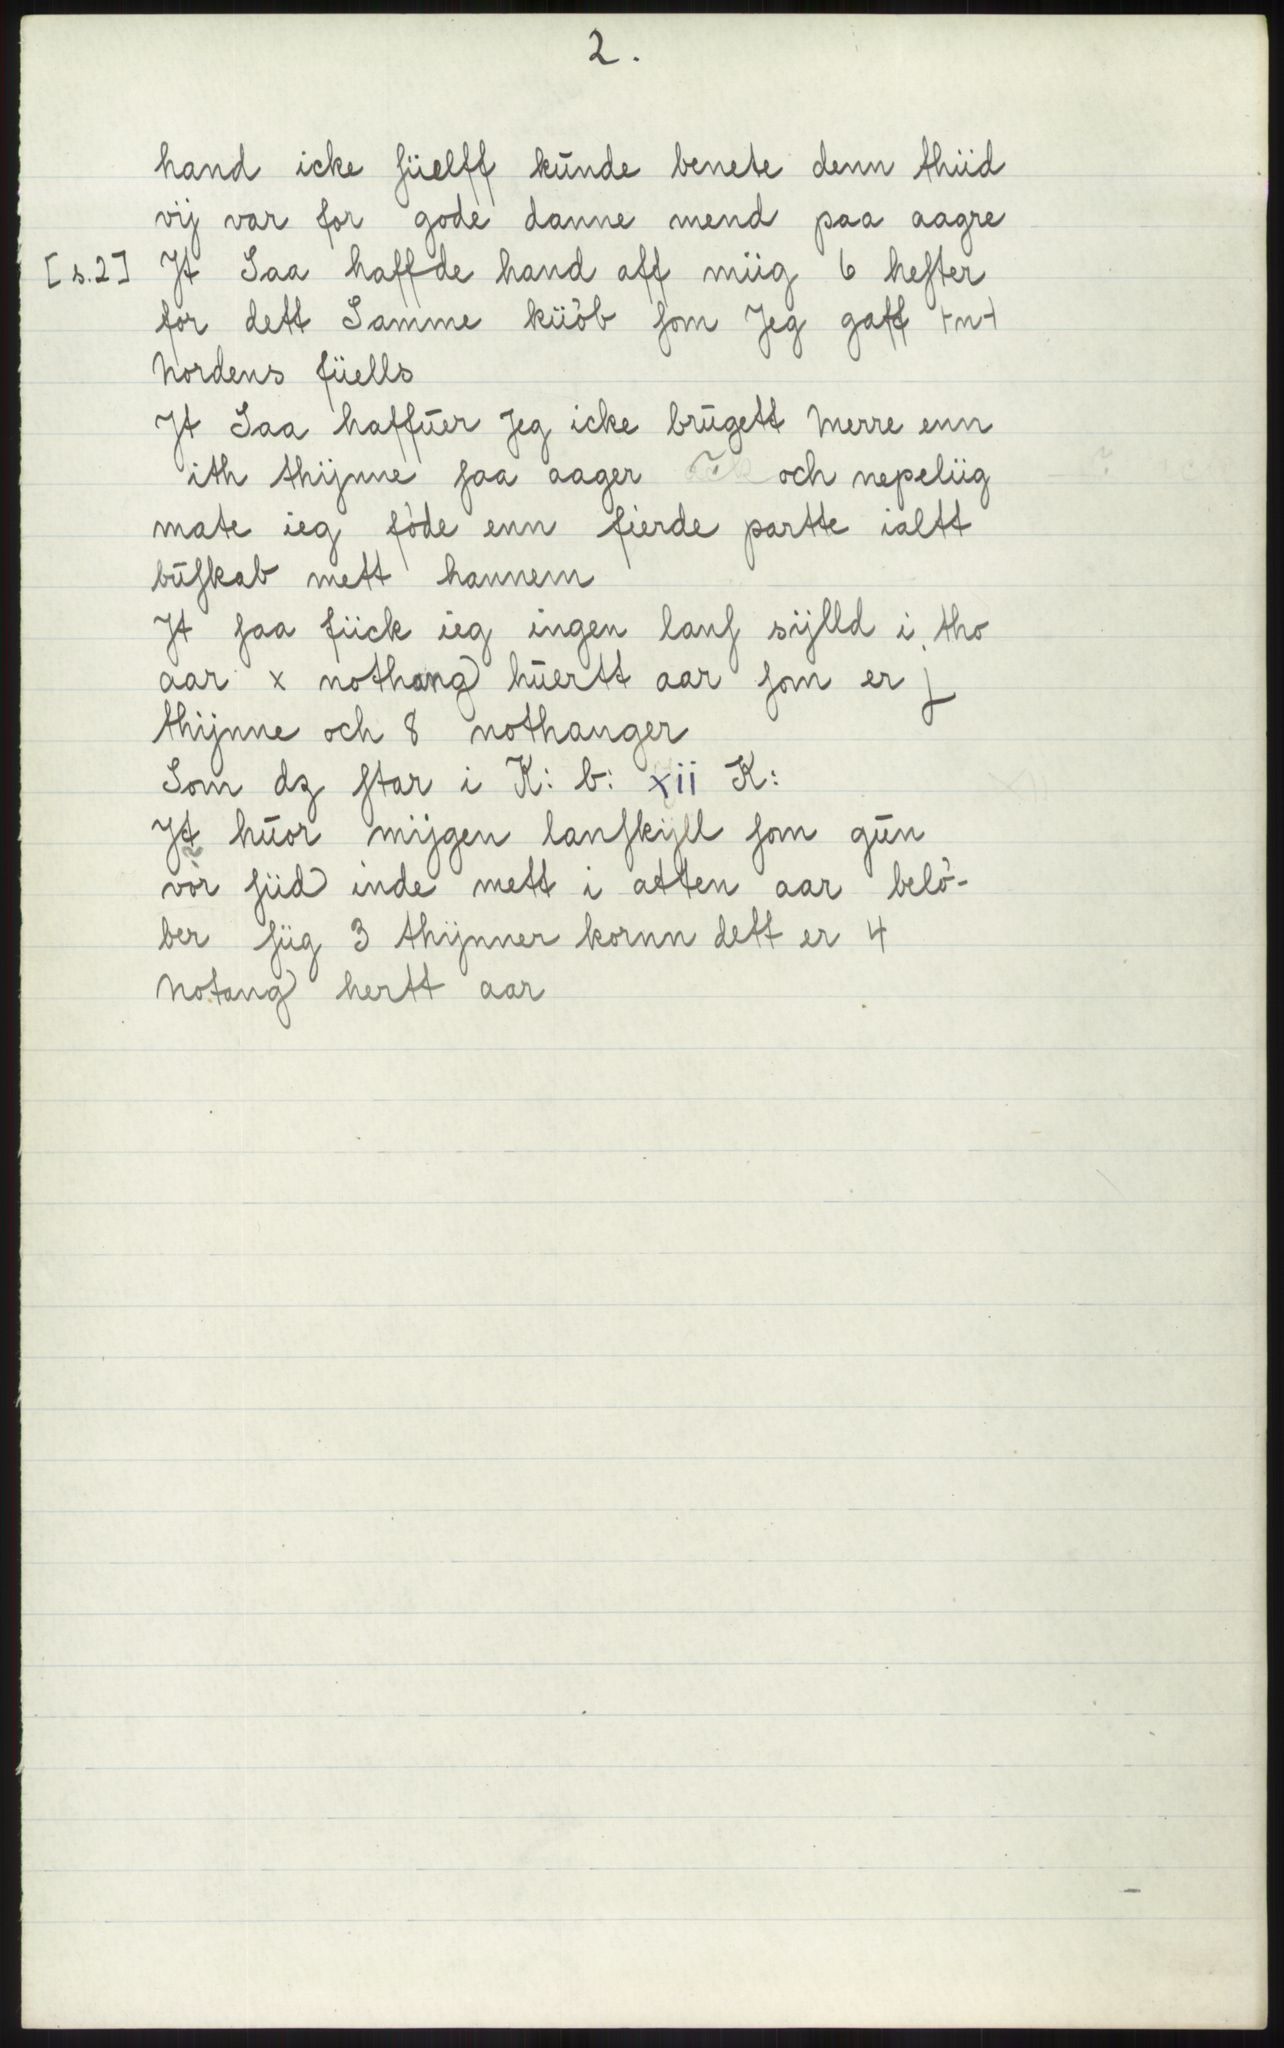 2.
hand icke ſüelff kūnde benete denn thiid
vij var for gode danne mend paa aagre
[s.2] Jt Saa haffde hand aff miig 6 heſter
for dett Samme küòb ſom Jeg gaff +n+
Nordens füells
Jt Saa haffūer Jeg icke brūgett Merre enn
ith thijnne ſaa aager och nepeliig
mate ieg fòde enn fierde partte ialtt
būſkab mett hannem
Jt ſaa fiick ieg ingen lanſ sijlld i tho
aar x nothang hūertt aar ſom er j
thijnne och 8 nothanger
Som dz ſtar i K: b: xii K:
Jt hūor mijgen lanſkijll ſom gūn
vòr ſiid inde mett i atten aar belò-
ber ſiig 3 thijnner kornn dett er 4
Notang hertt aar